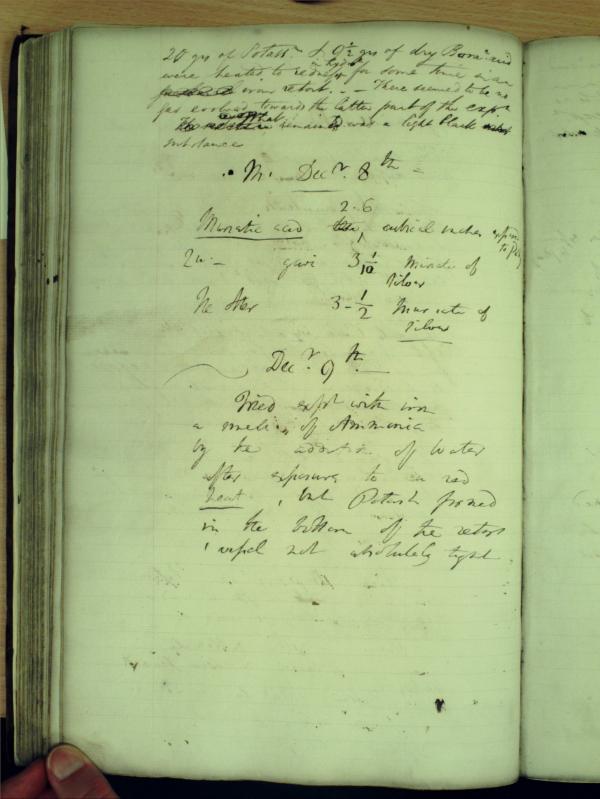 20 grs of Potassm & 9 1/2 grs of dry Boracic acid
were heated to redness for some time in an
iron retort. - - There seemed to be no
gas evolved towards the latter part of the expt
remained was a light black
substance
M. Decr. 8th
2.6
Muriatic acid cubical inches
2 gave 3 1/10 Muriate of
Silver
The other 3 - 1/2 Muriate of
Silver
Decr. 9th
Tried expt with iron
a smell of Ammonia
by the addition of water
after exposure to a red
heat, but Potash formed
in the bottom of the retort
vessel not absolutely tight